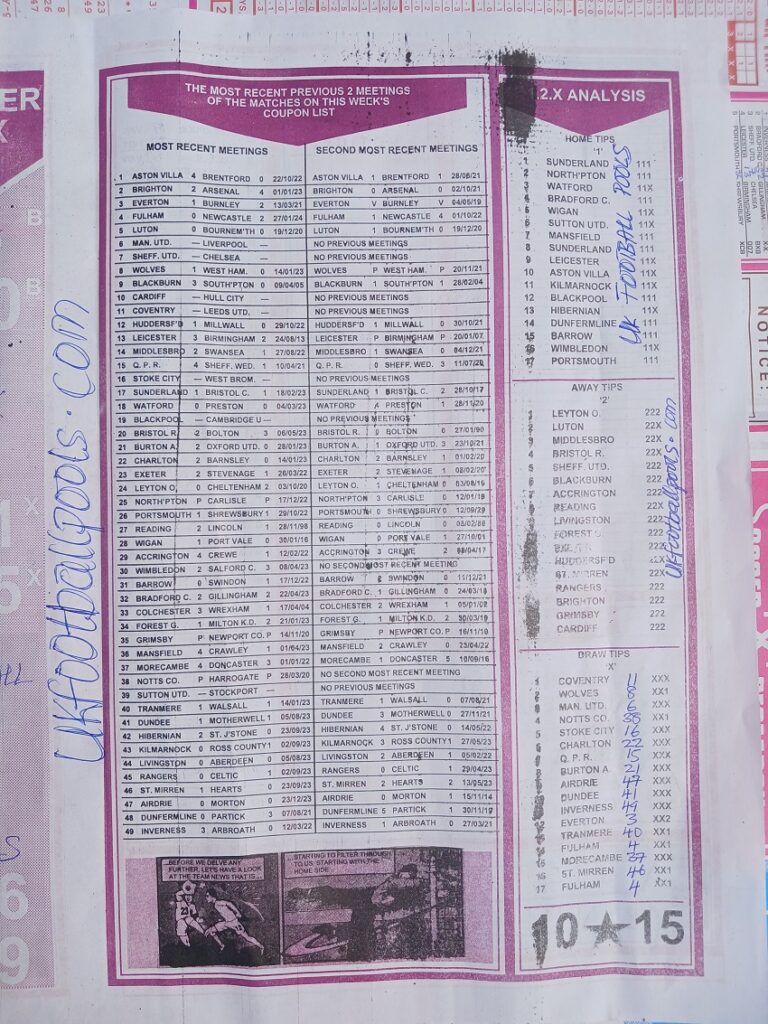 THE MOST RECENT PREVIOUS 2 MEETINGS
OF THE MATCHES ON THIS WEEK'S
COUPON LIST
MOST RECENT MEETINGS SECOND MOST RECENT MEETINGS
1 ASTON VILLA 4 BRENTFORD 0 22/10/22 ASTON VILLA 1 BRENTFORD 1 28/08/21
2 BRIGHTON 2 ARSENAL 4 01/01/23 BRIGHTON 0 ARSENAL 0 02/10/21
3 EVERTON 1 BURNLEY 2 13/03/21 EVERTON V BURNLEY V 04/05/19
4 FULHAM 0 NEWCASTLE 2 27/01/24 FULHAM 1 NEWCASTLE 4 01/10/22
5 LUTON 0 BOURNEM'TH 0 19/12/20 LUTON 0 BOURNEM'TH 0 19/12/20
6 MAN. UTD. — LIVERPOOL — NO PREVIOUS MEETINGS
7 SHEFF. UTD. — CHELSEA — NO PREVIOUS MEETINGS
8 WOLVES 1 WEST HAM. 0 14/01/23 WOLVES P WEST HAM. P 20/11/21
9 BLACKBURN 3 SOUTH'PTON 0 09/04/05 BLACKBURN 1 SOUTH'PTON 1 28/02/04
10 CARDIFF — HULL CITY — NO PREVIOUS MEETINGS
11 COVENTRY — LEEDS UTD. — NO PREVIOUS MEETINGS
12 HUDDERSF'D 1 MILLWALL 0 29/10/22 HUDDERSF'D 1 MILLWALL 0 30/10/21
13 LEICESTER 3 BIRMINGHAM 2 24/08/13 LEICESTER P BIRMINGH'M P 20/01/07
14 MIDDLESBRO 2 SWANSEA 1 27/08/22 MIDDLESBRO 1 SWANSEA 0 04/12/21
15 Q. P. R. 4 SHEFF. WED. 1 10/04/21 Q. P. R. 0 SHEFF. WED. 3 11/07/20
16 STOKE CITY — WEST BROM. — NO PREVIOUS MEETINGS
17 SUNDERLAND 1 BRISTOL C. 1 18/02/23 SUNDERLAND 1 BRISTOL C. 2 28/10/17
18 WATFORD 0 PRESTON 0 04/03/23 WATFORD 4 PRESTON 1 28/11/20
19 BLACKPOOL — CAMBRIDGE U — NO PREVIOUS MEETINGS
20 BRISTOL R. 2 BOLTON 3 06/05/23 BRISTOL R. 0 BOLTON 0 27/01/90
21 BURTON A. 2 OXFORD UTD. 0 28/01/23 BURTON A. 1 OXFORD UTD. 3 23/10/21
22 CHARLTON 2 BARNSLEY 0 14/01/23 CHARLTON 2 BARNSLEY 1 01/02/20
23 EXETER 2 STEVENAGE 1 26/03/22 EXETER 2 STEVENAGE 1 08/02/20
24 LEYTON O, 0 CHELTENHAM 2 03/10/20 LEYTON O. 1 CHELTENHAM 0 03/08/19
25 NORTH'PTON P CARLISLE P 17/12/22 NORTH'PTON 3 CARLISLE 0 12/01/19
26 PORTSMOUTH 1 SHREWSBURY 1 29/10/22 PORTSMOUTH 0 SHREWSBURY 0
27 READING 2 LINCOLN 1 28/11/98 READING 0 LINCOLN 0
28 WIGAN 1 PORT VALE 0 30/01/16 WIGAN 0 PORT VALE 1 27/10/01
29 ACCRINGTON 4 CREWE 1 12/02/22 ACCRINGTON 3 CREWE 2
30 WIMBLEDON 2 SALFORD C. 3 08/04/23 NO SECOND MOST RECENT MEETING
31 BARROW 0 SWINDON 1 17/12/22 BARROW 2 SWINDON 0 11/12/21
32 BRADFORD C. 2 GILLINGHAM 2 22/04/23 BRADFORD C. 1 GILLINGHAM 0 24/03/18
33 COLCHESTER 3 WREXHAM 1 17/04/04 COLCHESTER 2 WREXHAM 1 05/01/02
34 FOREST G. 1 MILTON K.D. 2 21/01/23 FOREST G. 1 MILTON K.D. 2 30/03/19
35 GRIMSBY P NEWPORT CO. P 14/11/20 GRIMSBY P NEWPORT CO. P 16/11/19
36 MANSFIELD 4 CRAWLEY 1 01/04/23 MANSFIELD 2 CRAWLEY 0 23/04/22
37 MORECAMBE 4 DONCASTER 3 01/01/22 MORECAMBE 1 DONCASTER 5 10/09/16
38 NOTTS CO. P HARROGATE P 28/03/20 NO SECOND MOST RECENT MEETING
39 SUTTON UTD. — STOCKPORT — NO PREVIOUS MEETINGS
40 TRANMERE 1 WALSALL 1 14/01/23 TRANMERE 1 WALSALL 0 07/08/21
41 DUNDEE 1 MOTHERWELL 1 05/08/23 DUNDEE 3 MOTHERWELL 0 27/11/21
42 HIBERNIAN 2 ST. J'STONE 0 02/09/23 HIBERNIAN 4 ST. J'STONE 0 14/05/22
43 KILMARNOCK 0 ROSS COUNTY 1 02/09/23 KILMARNOCK 3 ROSS COUNTY 1 27/05/23
44 LIVINGSTON 0 ABERDEEN 0 05/08/23 LIVINGSTON 2 ABERDEEN 1 05/02/22
45 RANGERS 0 CELTIC 1 02/09/23 RANGERS 0 CELTIC 1 29/04/23
46 ST. MIRREN 1 HEARTS 0 23/09/23 ST. MIRREN 2 HEARTS 2 13/05/23
47 AIRDRIE 0 MORTON 0 23/12/23 AIRDRIE 0 MORTON 1 15/11/14
48 DUNFERMLINE 0 PARTICK 3 07/08/21 DUNFERMLINE 5 PARTICK 1 30/11/19
49 INVERNESS 3 ARBROATH 0 12/03/22 INVERNESS 1 ARBROATH 0 27/03/21
...BEFORE WE DELVE ANY
FURTHER, LET'S HAVE A LOOK
AT THE TEAM NEWS THAT IS...
...STARTING TO FILTER THROUGH
TO US, STARTING WITH THE
HOME SIDE...
12.X ANALYSIS
HOME TIPS
'1'
1 SUNDERLAND 111
2 NORTH'PTON 111
3 WATFORD 11X
4 BRADFORD C. 111
5 WIGAN 11X
6 SUTTON UTD. 11X
7 MANSFIELD 111
8 SUNDERLAND 111
9 LEICESTER 111
10 ASTON VILLA 111
11 KILMARNOCK 11X
12 BLACKPOOL 111
13 HIBERNIAN 11X
14 DUNFERMLINE 111
15 BARROW 11X
16 WIMBLEDON 11X
17 PORTSMOUTH 111
UK FOOTBALL POOLS
AWAY TIPS
'2'
LEYTON O. 222
LUTON 22X
MIDDLESBRO 22X
BRISTOL R. 22X
SHEFF. UTD. 222
BLACKBURN 222
ACCRINGTON 222
READING 22X
LIVINGSTON 222
FOREST G. 222
HUDDERSF'D 22X
ST. MIRREN 22X
RANGERS 222
BRIGHTON 222
GRIMSBY 222
CARDIFF 222
ukfootballpools.com
DRAW TIPS
'X'
COVENTRY 11 XXX
WOLVES XX1
MAN. UTD. 6 XXX
NOTTS CO. 38 XX1
STOKE CITY 16 XXX
CHARLTON 22 XXX
Q. P. R. 15 XXX
BURTON A. 21 XXX
AIRDRIE 47 XXX
DUNDEE 41 XXX
INVERNESS 49 XXX
EVERTON 3 XX2
TRANMERE 40 XX1
FULHAM 4 XX1
MORECAMBE 37 XXX
ST. MIRREN 46 XX1
17 FULHAM 4 XX1
10★15
ukfootballpools.com
ER
X
NOTICE: